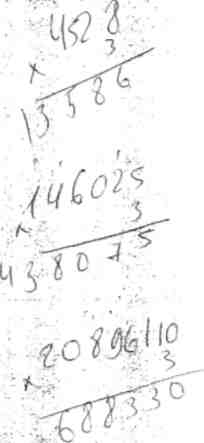 4528
× 3
13586
146025
× 3
438075
× 3
688330